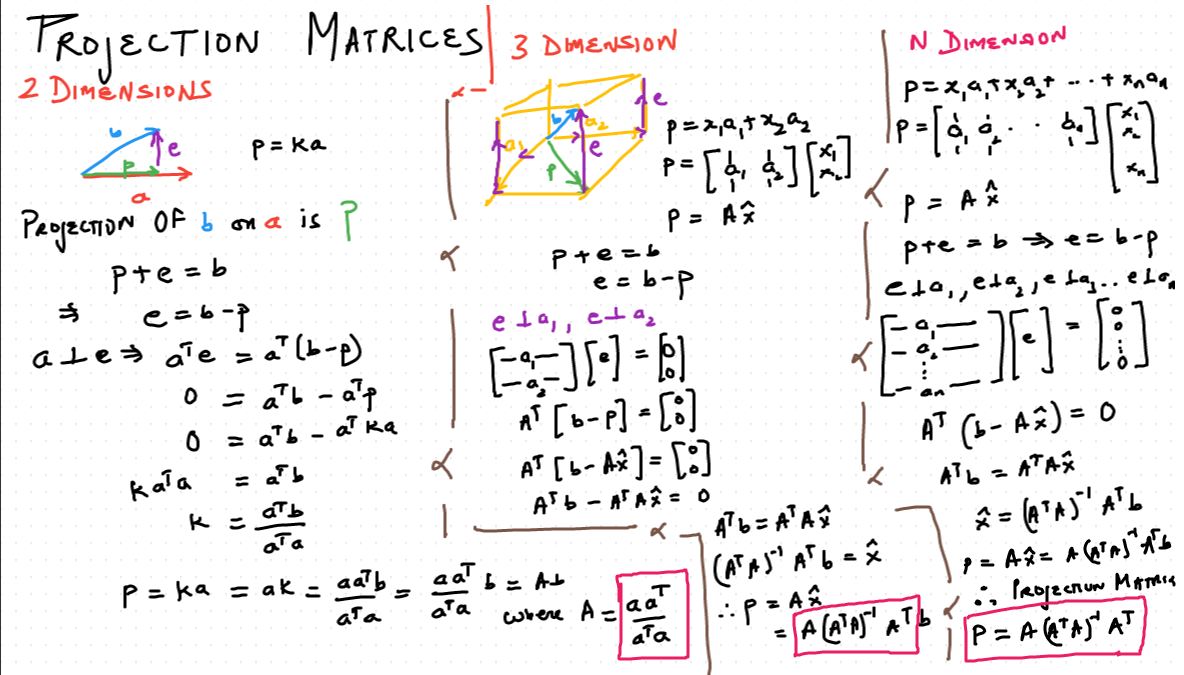 PROJECTION MATRICES
2 DIMENSIONS
b
e
p
a
p = ka
PROJECTION OF b on a is P
p + e = b
⇒ e = b - p
a ⊥ e ⇒ aᵀe = aᵀ(b-p)
0 = aᵀb - aᵀp
0 = aᵀb - aᵀka
kaᵀa = aᵀb
k = aᵀb / aᵀa
P = ka = ak = aaᵀb / aᵀa = aaᵀ / aᵀa b = Ab
where A = aaᵀ / aᵀa
3 DIMENSION
b
a₂
e
a₁
e
p
p = x₁a₁ + x₂a₂
p = [a₁ a₂] [x₁ x₂]
p = Ax̂
p + e = b
e = b - p
e ⊥ a₁, e ⊥ a₂
[-a₁- -a₂-] [e] = [0 0]
Aᵀ [b - p] = [0 0]
Aᵀ [b - Ax̂] = [0 0]
Aᵀb - AᵀAx̂ = 0
Aᵀb = AᵀAx̂
(AᵀA)⁻¹ Aᵀb = x̂
∴ p = Ax̂
= A(AᵀA)⁻¹ Aᵀ b
N DIMENSION
p = x₁a₁ + x₂a₂ + ... + xₙaₙ
p = [a₁ a₂ .. aₙ] [x₁ x₂ xₙ]
p = Ax̂
p + e = b ⇒ e = b - p
e ⊥ a₁, e ⊥ a₂, e ⊥ a₃ .. e ⊥ aₙ
[-a₁- -a₂- ⋮ -aₙ-] [e] = [0 0 ⋮ 0]
Aᵀ (b - Ax̂) = 0
Aᵀb = AᵀAx̂
x̂ = (AᵀA)⁻¹ Aᵀb
p = Ax̂ = A(AᵀA)⁻¹Aᵀb
∴ PROJECTION MATRIX
P = A(AᵀA)⁻¹ Aᵀ